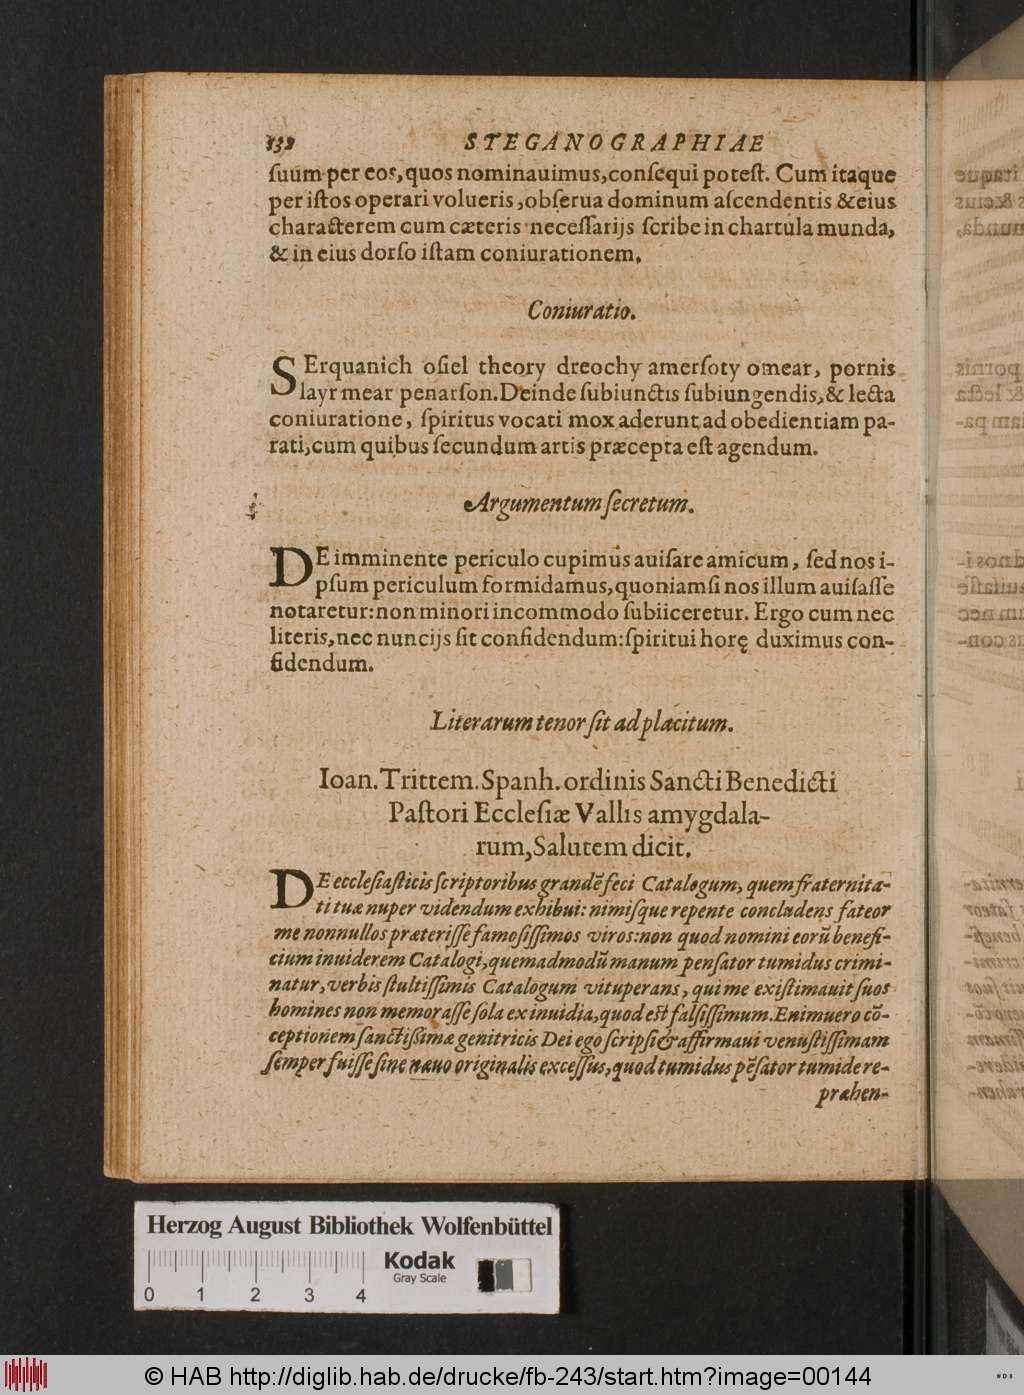 132 STEGANOGRAPHIAE
ſuum per eos, quos nominauimus, conſequi poteſt. Cum itaque
per iſtos operari volueris, obſerua dominum aſcendentis & eius
characterem cum cæteris neceſſarijs ſcribe in chartula munda,
& in eius dorſo iſtam coniurationem.
Coniuratio.
SErquanich oſiel theory dreochy amerſoty omear, pornis
layr mear penarſon. Deinde ſubiunctis ſubiungendis, & lecta
coniuratione, ſpiritus vocati mox aderunt ad obedientiam pa-
rati, cum quibus ſecundum artis præcepta eſt agendum.
Argumentum ſecretum.
DE imminente periculo cupimus auiſare amicum, ſed nos i-
pſum periculum formidamus, quoniam ſi nos illum auiſaſſe
notaretur: non minori incommodo ſubiiceretur. Ergo cum nec
literis, nec nuncijs ſit confidendum: ſpiritui horę duximus con-
fidendum.
Literarum tenor ſit ad placitum.
Ioan. Trittem. Spanh. ordinis Sancti Benedicti
Paſtori Eccleſiæ Vallis amygdala-
rum, Salutem dicit.
DE eccleſiaſticis ſcriptoribus grandē feci Catalogum, quem fraternita-
ti tuæ nuper videndum exhibui: nimiſque repente concludens fateor
me nonnullos præteriſſe famoſiſſimos viros: non quod nomini eorū benefi-
cium inuiderem Catalogi, quemadmodū manum penſator tumidus crimi-
natur, verbis ſtultiſſimis Catalogum vituperans, qui me exiſtimauit ſuos
homines non memoraſſe ſola ex inuidia, quod eſt falſiſſimum. Enimuero cō-
ceptionem ſanctißimæ genitricis Dei ego ſcripſi & affirmaui venuſtiſſimam
ſemper fuiſſe ſine næuo originalis exceſſus, quod tumidus pēſator tumide re-
præhen-
Herzog August Bibliothek Wolfenbüttel
Kodak
Gray Scale
0 1 2 3 4
© HAB http://diglib.hab.de/drucke/fb-243/start.htm?image=00144